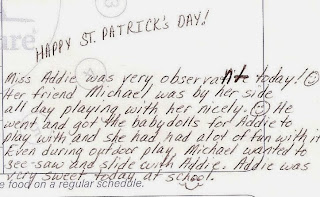 are
HAPPY ST. PATRICK'S DAY!
Miss Addie was very observant today! ☺
Her friend Michael was by her side
all day playing with her nicely. ☺ He
went and got the babydolls for Addie to
play with and she had had alot of fun with it
Even during outdoor play, Michael wanted to
see-saw and slide with Addie. Addie was
very sweet today at school.
e food on a regular schedule.